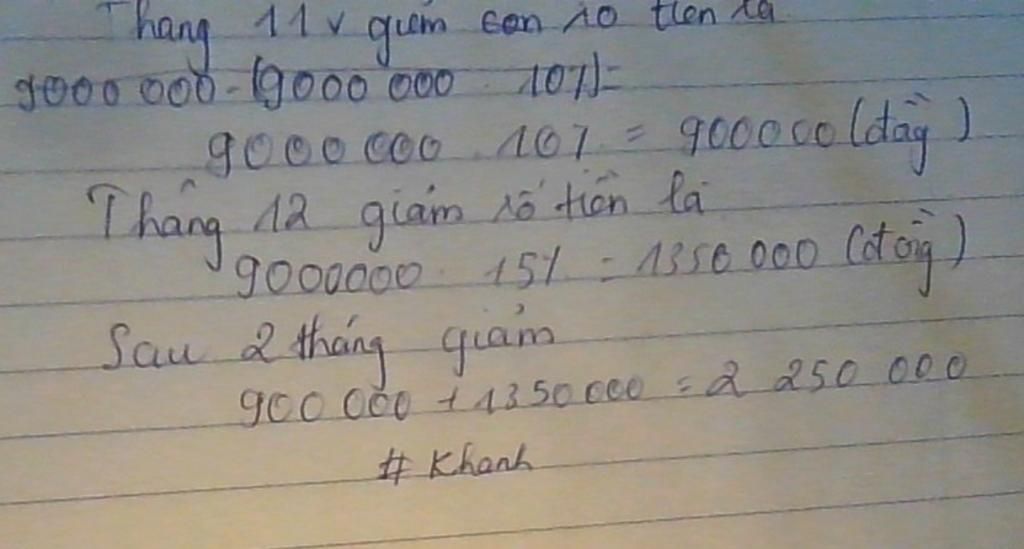 Tháng 11 giảm còn số tiền là
9000 000 - (9000 000 . 10%) =
9000 000 . 10% = 900000 (đồng)
Tháng 12 giảm số tiền là
9000000 . 15% = 1350 000 (đồng)
Sau 2 tháng giảm
900 000 + 1350000 = 2 250 000
# Khanh